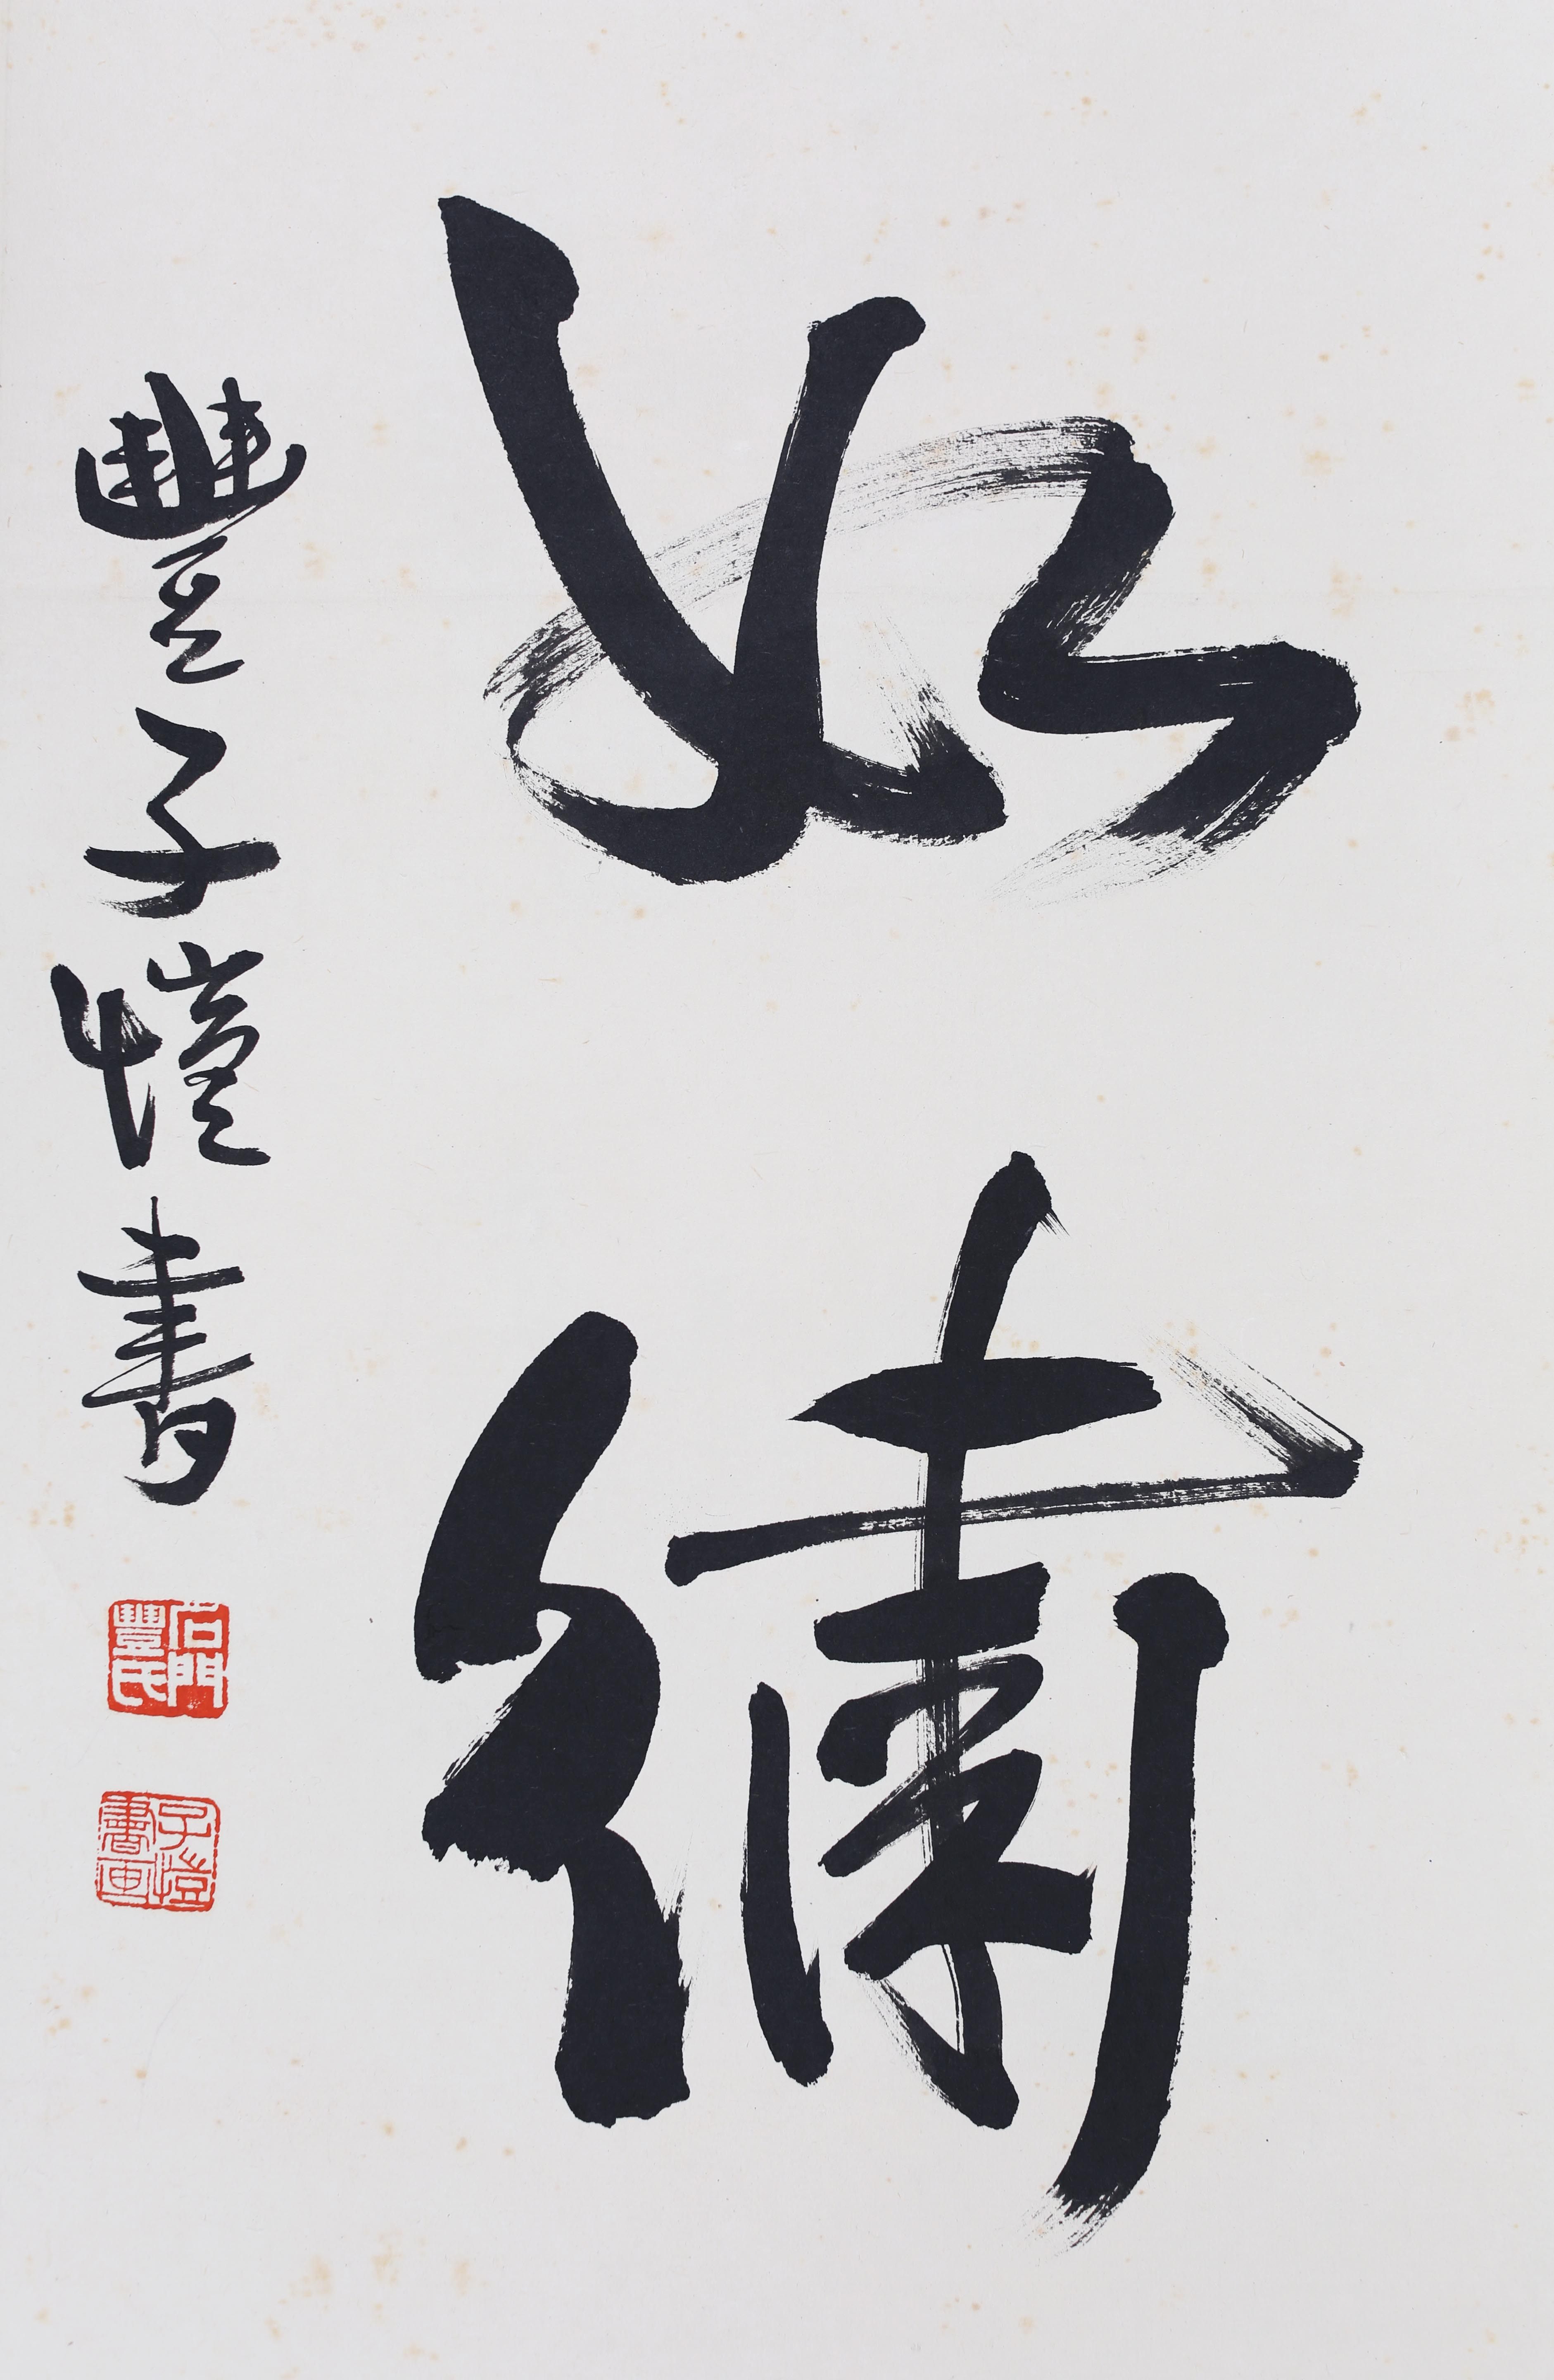 如繡
豐子愷書
石門豐氏
子愷書画